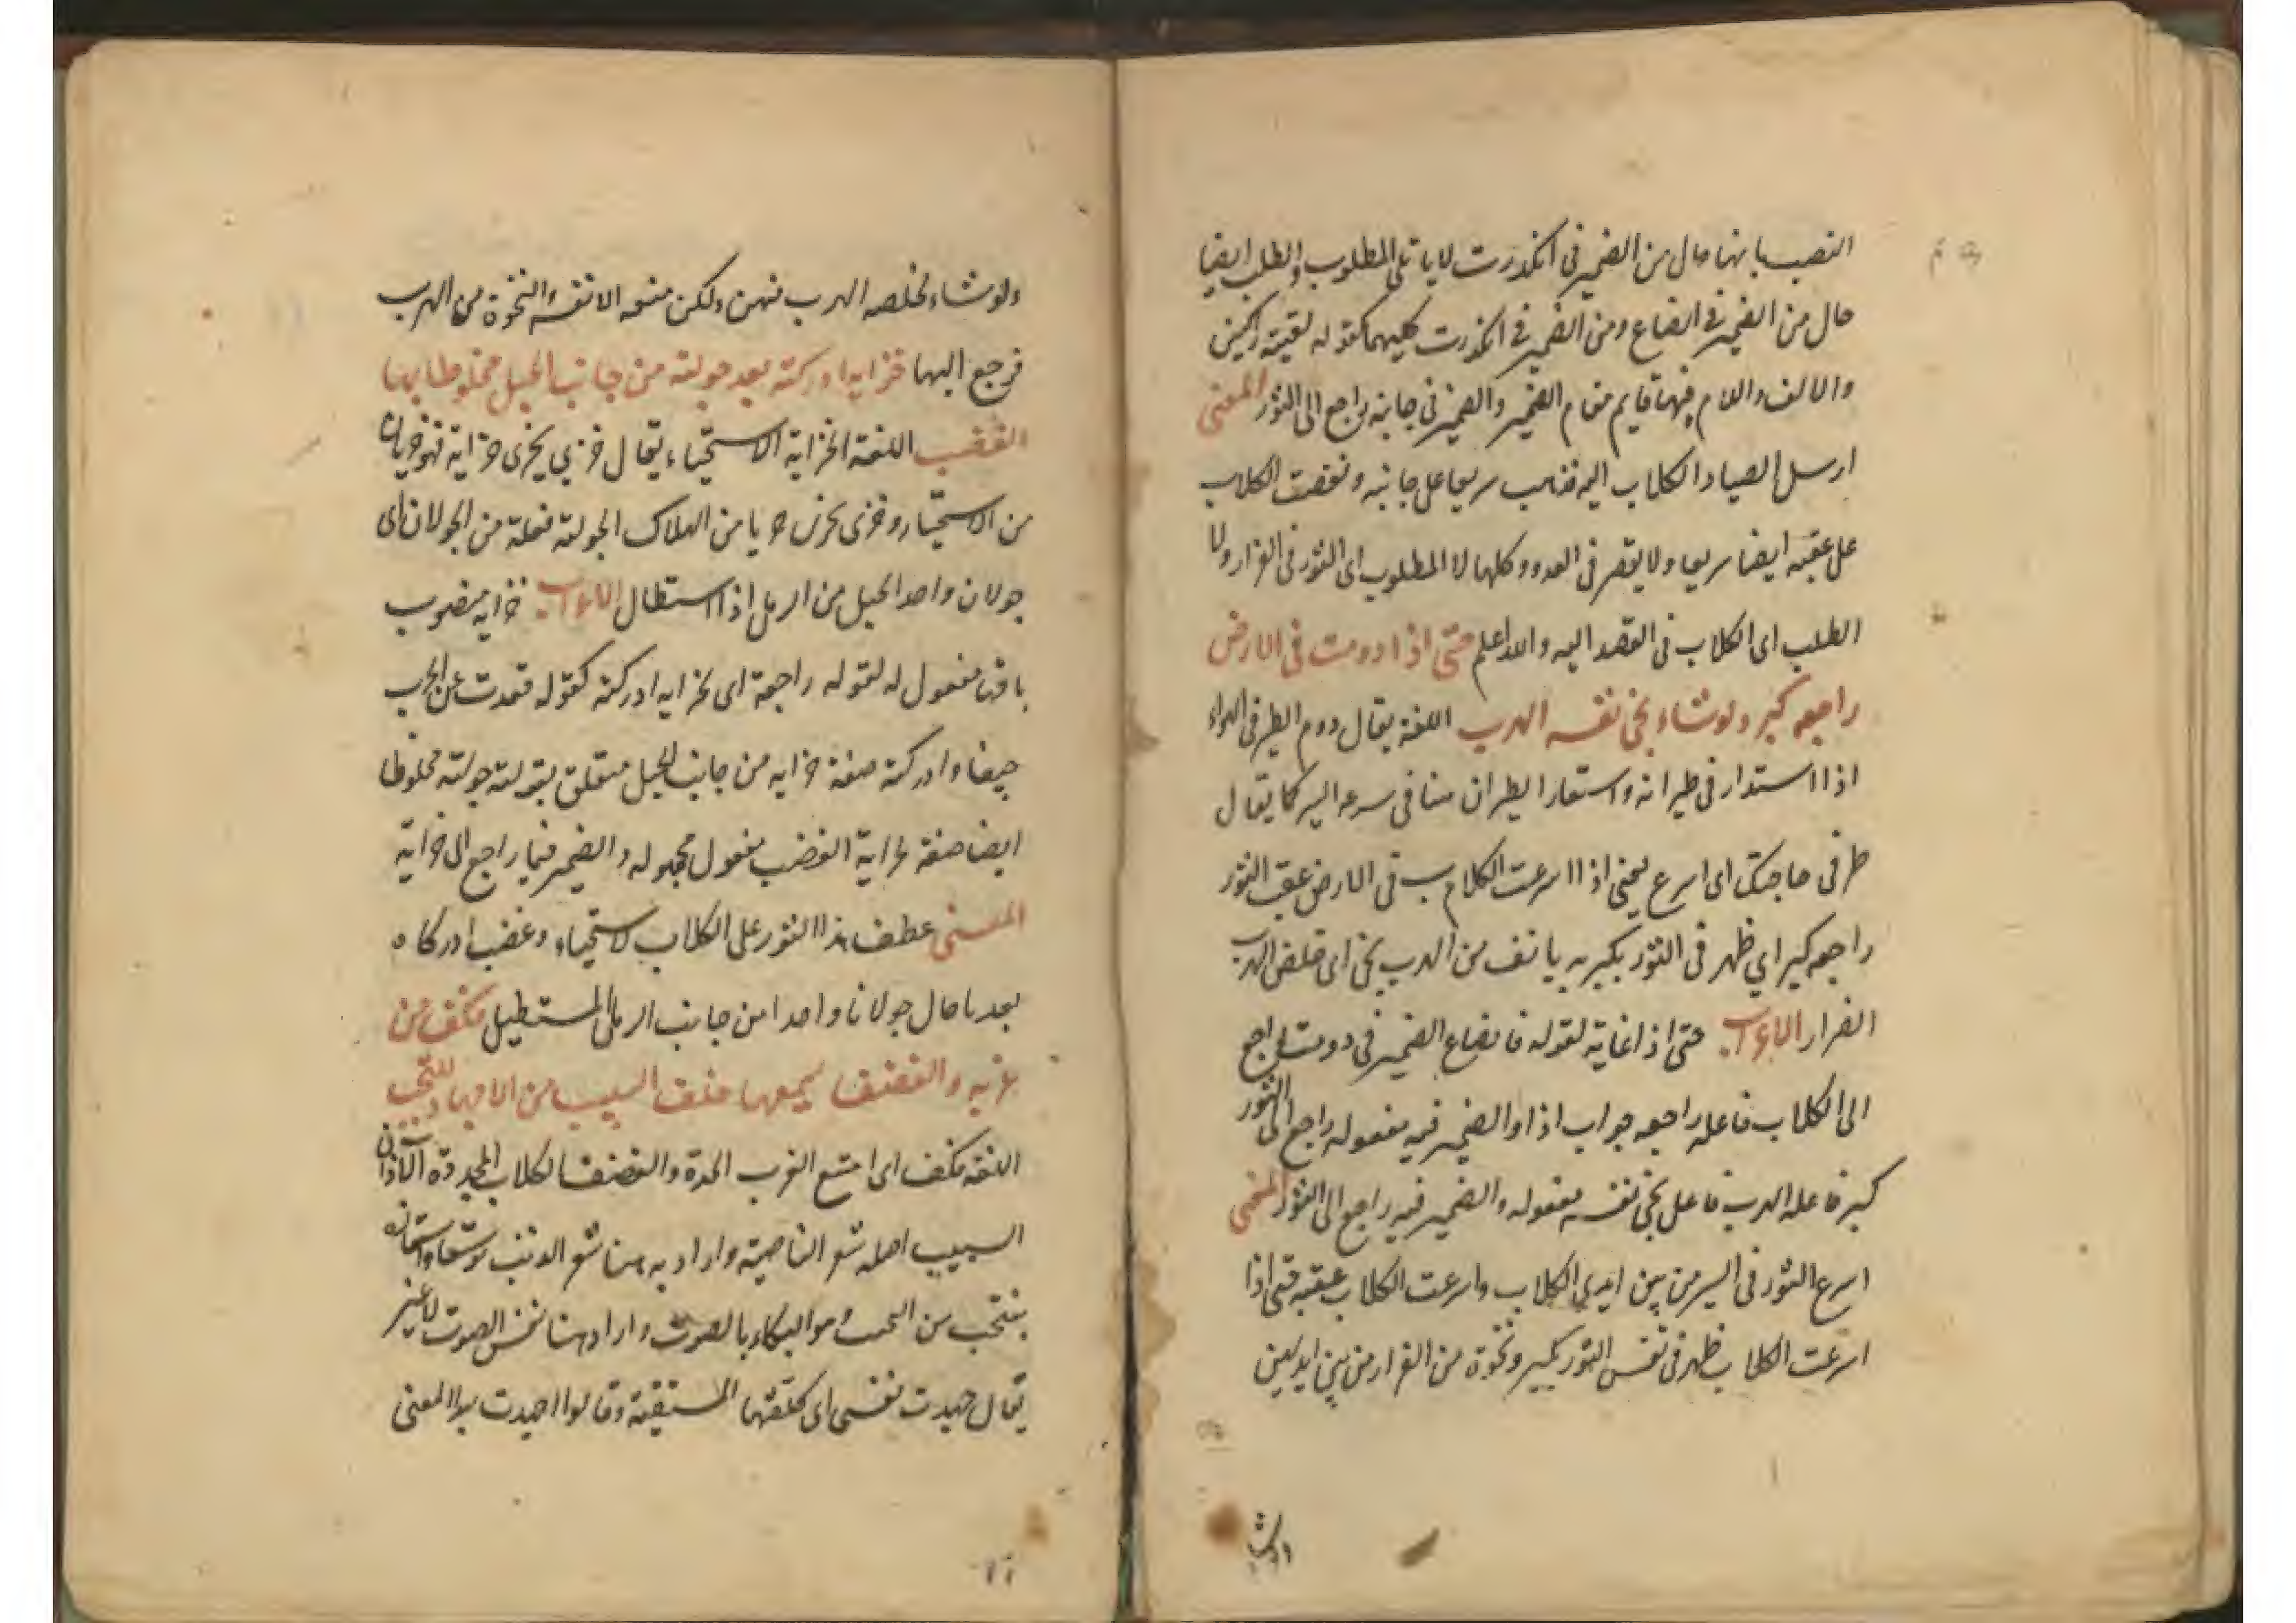 النصب بانها حال من الضمير فى انكدرت لا ياتلى المطلوب والطلب ايضا
حال من الضمير فى انصاع ومن الضمير فى انكدرت كليهما كقوله لقيته راكبين
والالف واللام فيهما قايم مقام الضمير والضمير فى جانبه راجع الى الثور المعنى
ارسل الصياد الكلاب اليه فذهب سريعا على جانبه ونقضت الكلاب
على عقبه ايضا سريعا ولا يقصر فى العدو وكلها لا المطلوب اى الثور فى الفرار ولا
الطلب اى الكلاب فى القصد اليه والله اعلم حتى اذا دومت فى الارض
راجعه كبر ولو شاء نجى نفسه الهرب اللغة يقال دوم الطير فى الهواء
اذا استدار فى طيرانه واستعار الطيران هنا فى سرعه السير كما يقال
طر فى حاجتك اى اسرع يعنى اذا اسرعت الكلاب فى الارض عقب الثور
راجعه كبر اي ظهر فى الثور بكبر به يانف من الهرب نجى اى خلص الهرب
الفرار الاعراب حتى اذا غاية لقوله فانصاع الضمير فى دومت راجع
الى الكلاب فاعله راجعه جواب اذا والضمير فيه مفعوله راجع الى الثور
كبر فاعله الهرب فاعل نجى نفسه مفعوله والضمير فيه راجع الى الثور المعنى
اسرع الثور فى السير من بين ايدي الكلاب واسرعت الكلاب عقبه حتى اذا
اسرعت الكلاب ظهر فى نفس الثور بكبر ونخوة من الفرار من بين ايديهن
ولو شاء لخلصه الهرب منهن ولكن منعه الانفة والنخوة من الهرب
فرجع اليها خزاية ادركته بعد جولته من جانب الحبل مخلوطا بها
الغضب اللغة الخزاية الاستحياء يقال خزي يخزى خزاية فهو خزيان
من الاستحياء وخزى يخزى خزيا من الهلاك الجولة فعلة من الجولان اى
جولان واحد الحبل من الرمل اذا استطال الاعراب خزاية منصوب
بانها مفعول له لقوله راجعة اى لخزاية ادركته كقوله قعدت عن الحرب
جبنا وادركته صفة خزاية من جانب الحبل متعلق بقوله جولته مخلوطا
ايضا صفة لخزاية الغضب مفعول مجهوله والضمير فيها راجع الى خزاية
المعنى عطف هذا الثور على الكلاب لاستحياء وغضب ادركاه
بعد ما جال جولانا واحدا من جانب الرمل المستطيل فكف من
غربه والغضف يسمعها خلف السبيب من الاجهاد تنتحب
اللغة فكف اى امتنع الغرب الحدة والغضف الكلاب الآذان
السبيب اصله شعر الناصية واراد به هنا شعر الذنب
ينتحب من النحب وهو البكاء بالصوت واراد هنا نفس الصوت لا غير
يقال جهدت نفسى اى كلفتها المشقة وقالوا اجهدت المعنى